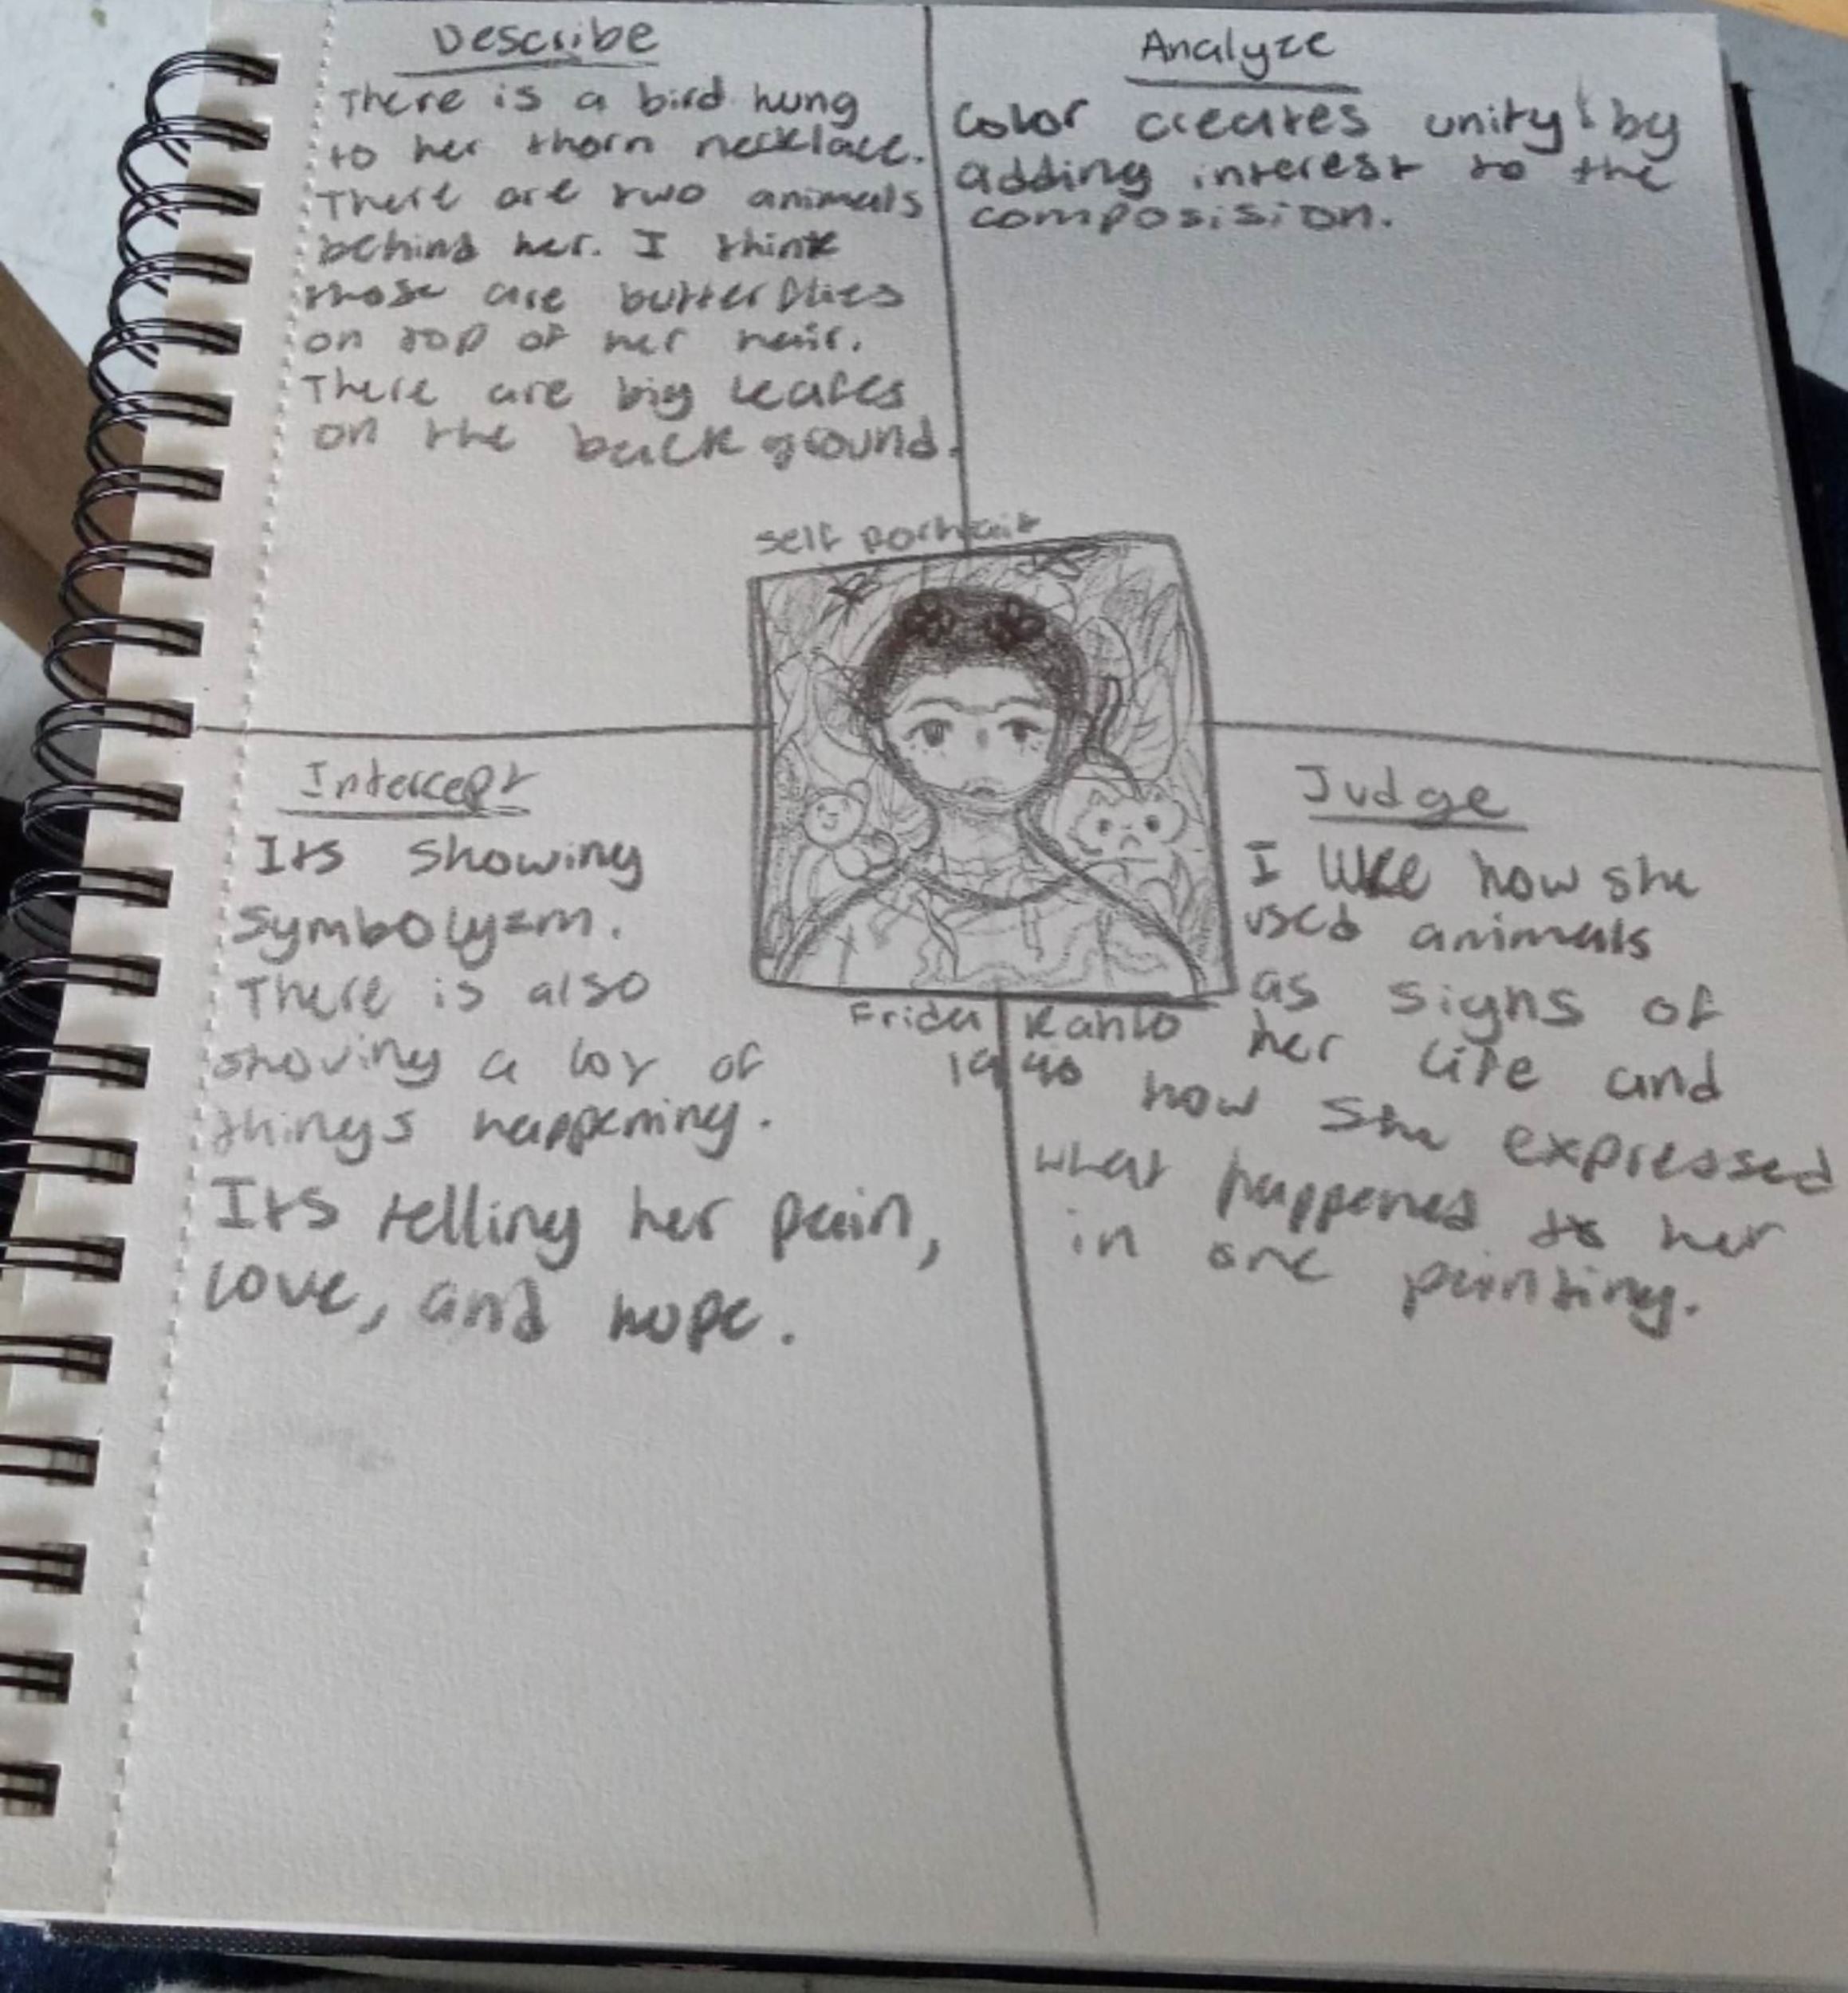 Describe
There is a bird hung
to her thorn necklace.
There are two animals
behind her. I think
those are butterflies
on top of her hair.
There are big leafes
on the back ground.
Analyze
Color creates unity by
adding interest to the
composision.
self portrait
Frida Kahlo
1940
Intercept
Its showing
symbolyzm.
There is also
shoving a lot of
things happening.
Its telling her pain,
love, and hope.
Judge
I like how she
used animals
as signs of
her life and
how she expressed
what happened to her
in one painting.